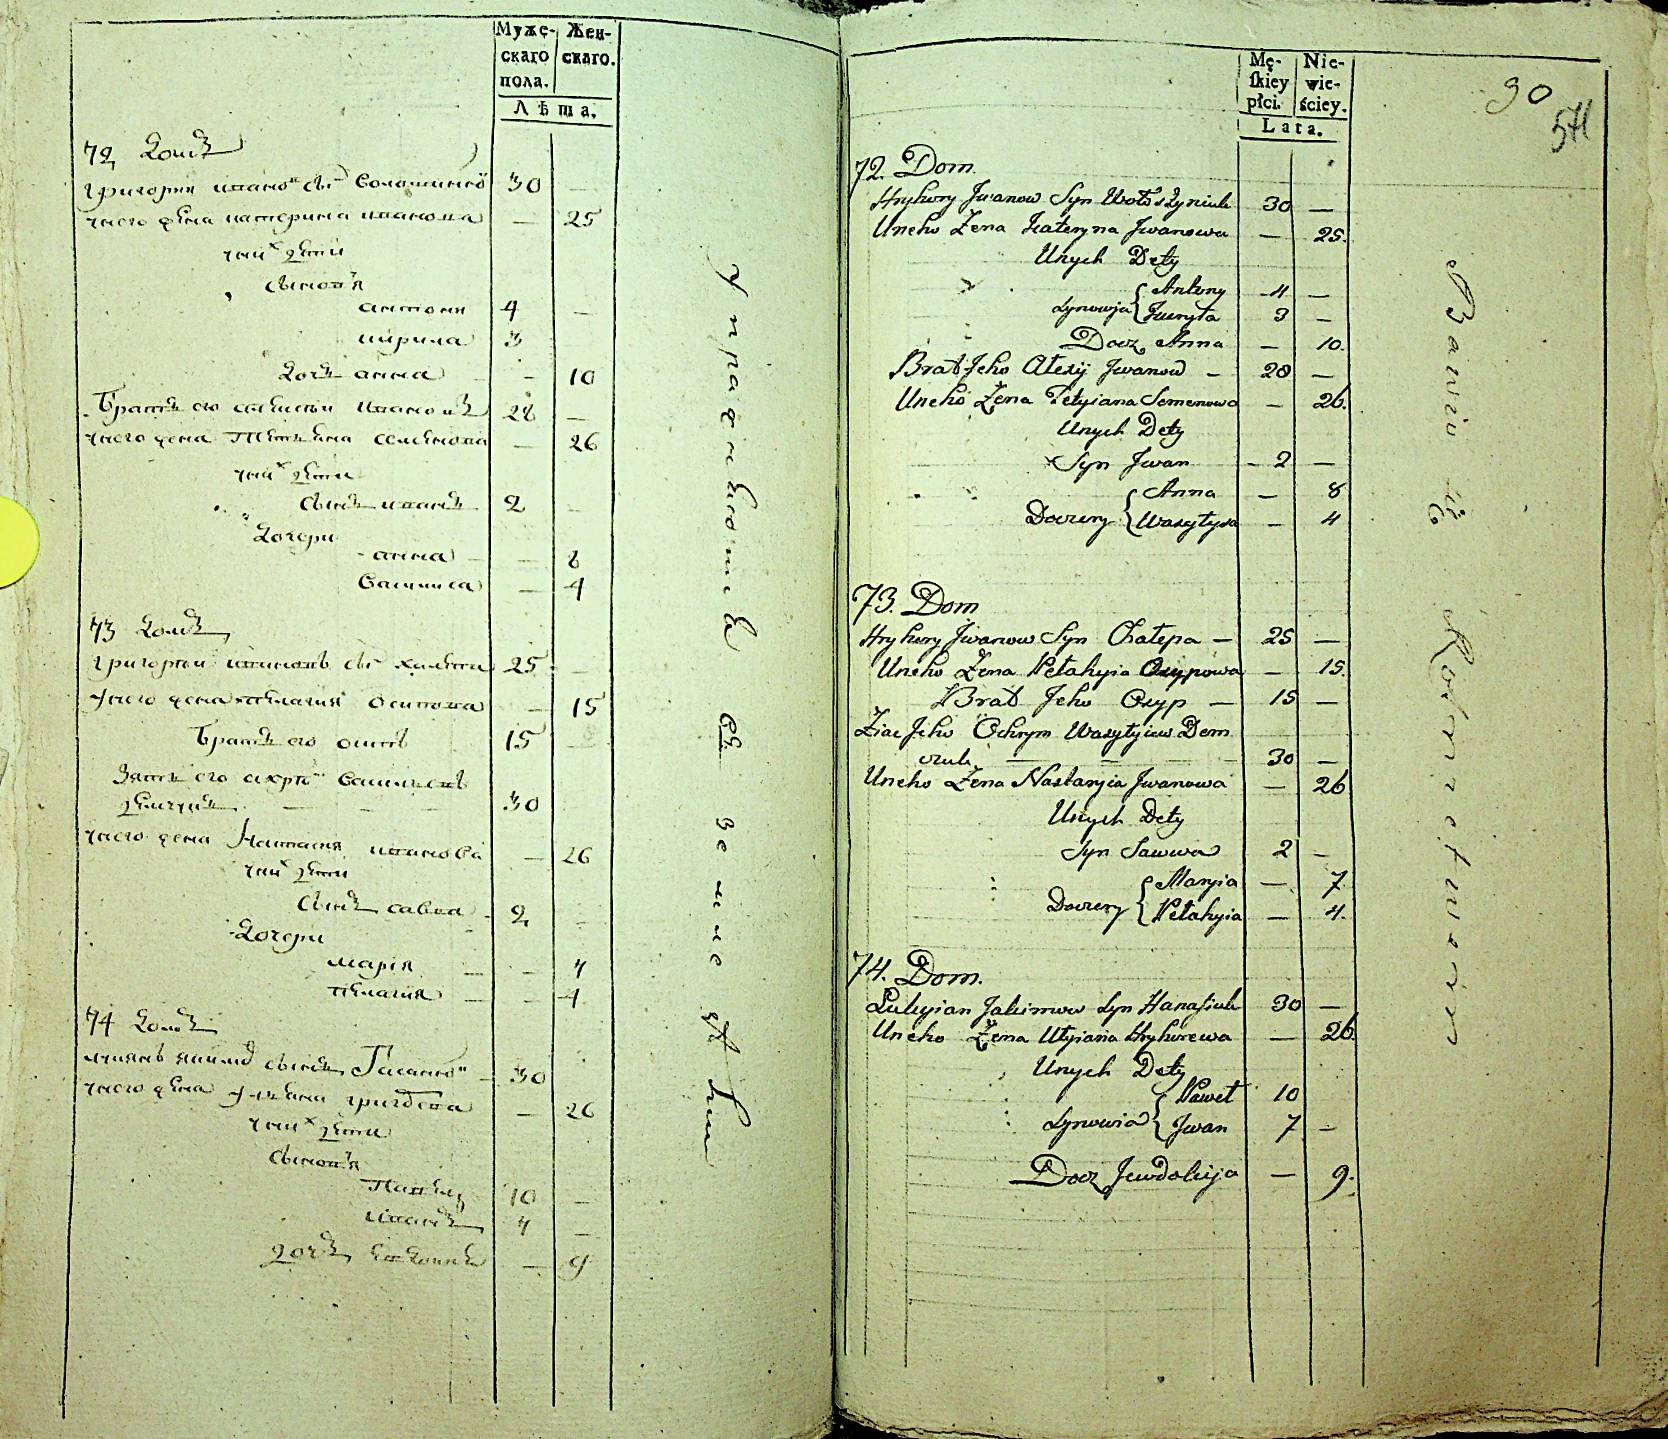 Муже-
скаго
пола.
Жен-
скаго.
Лѣта.
72 Домъ
Григорий Иванов сын 30 —
у него жена Катерина Иванова — 25
у них дети
сыновья
Антоний 4 —
Кирила 3 —
дочь Анна — 10
Братъ его Алексий Ивановъ 28 —
у него жена Татьяна Семенова — 26
у них дети
сынъ Иванъ 2 —
Дочери
Анна — 8
Василиса — 4
73 Домъ
Григорий Ивановъ сын Халепа 25 —
у него жена Пелагия Осипова — 15
Братъ его Осипъ 15 —
Зять его Охрим Васильевъ
Демчукъ 30
у него жена Настасия Иванова — 26
у них дети
сынъ Савва 2 —
Дочери
Мария — 7
Пелагия — 4
74 Домъ
сынъ 30
у него жена Ульяна — 26
у них дети
сыновья
Павелъ 10 —
Иванъ 7 —
дочь — 9
упражняются въ земледѣлии
Mę-
skiey
płci.
Nie-
wie-
ściey.
Lata.
90
571
72. Dom.
Hryhory Jwanow Syn Wołoszyniuk 30 —
Uneho Żena Kateryna Jwanowa — 25.
Unych Dety
Synowja { Antony 4 —
Kuryła 3 —
Docz Anna — 10.
Brat Jeho Alexij Jwanow — 28 —
Uneho Żena Tetyiana Semenowa — 26.
Unych Dety
Syn Jwan 2 —
Doczery { Anna — 8
Wasyłysa — 4
73. Dom
Hryhory Jwanow Syn Chalepa — 25 —
Uneho Żena Pełahyia Osypowa — 15.
Brat Jeho Osyp — 15 —
Ziać Jeho Ochrym Wasylyiew Dem
czuk 30 —
Uneho Żena Nastasyia Jwanowa — 26
Unych Dety
Syn Sawwa 2 —
Doczery { Maryia — 7
Pełahyia — 4.
74. Dom.
Łukyian Jakimow Syn Hanasiuk 30 —
Uneho Żena Ulyiana Hryhorewa — 26
Unych Dety
Synowia { Paweł 10
Jwan 7 —
Docz Jewdokija — 9.
Bawią się Rolnictwem